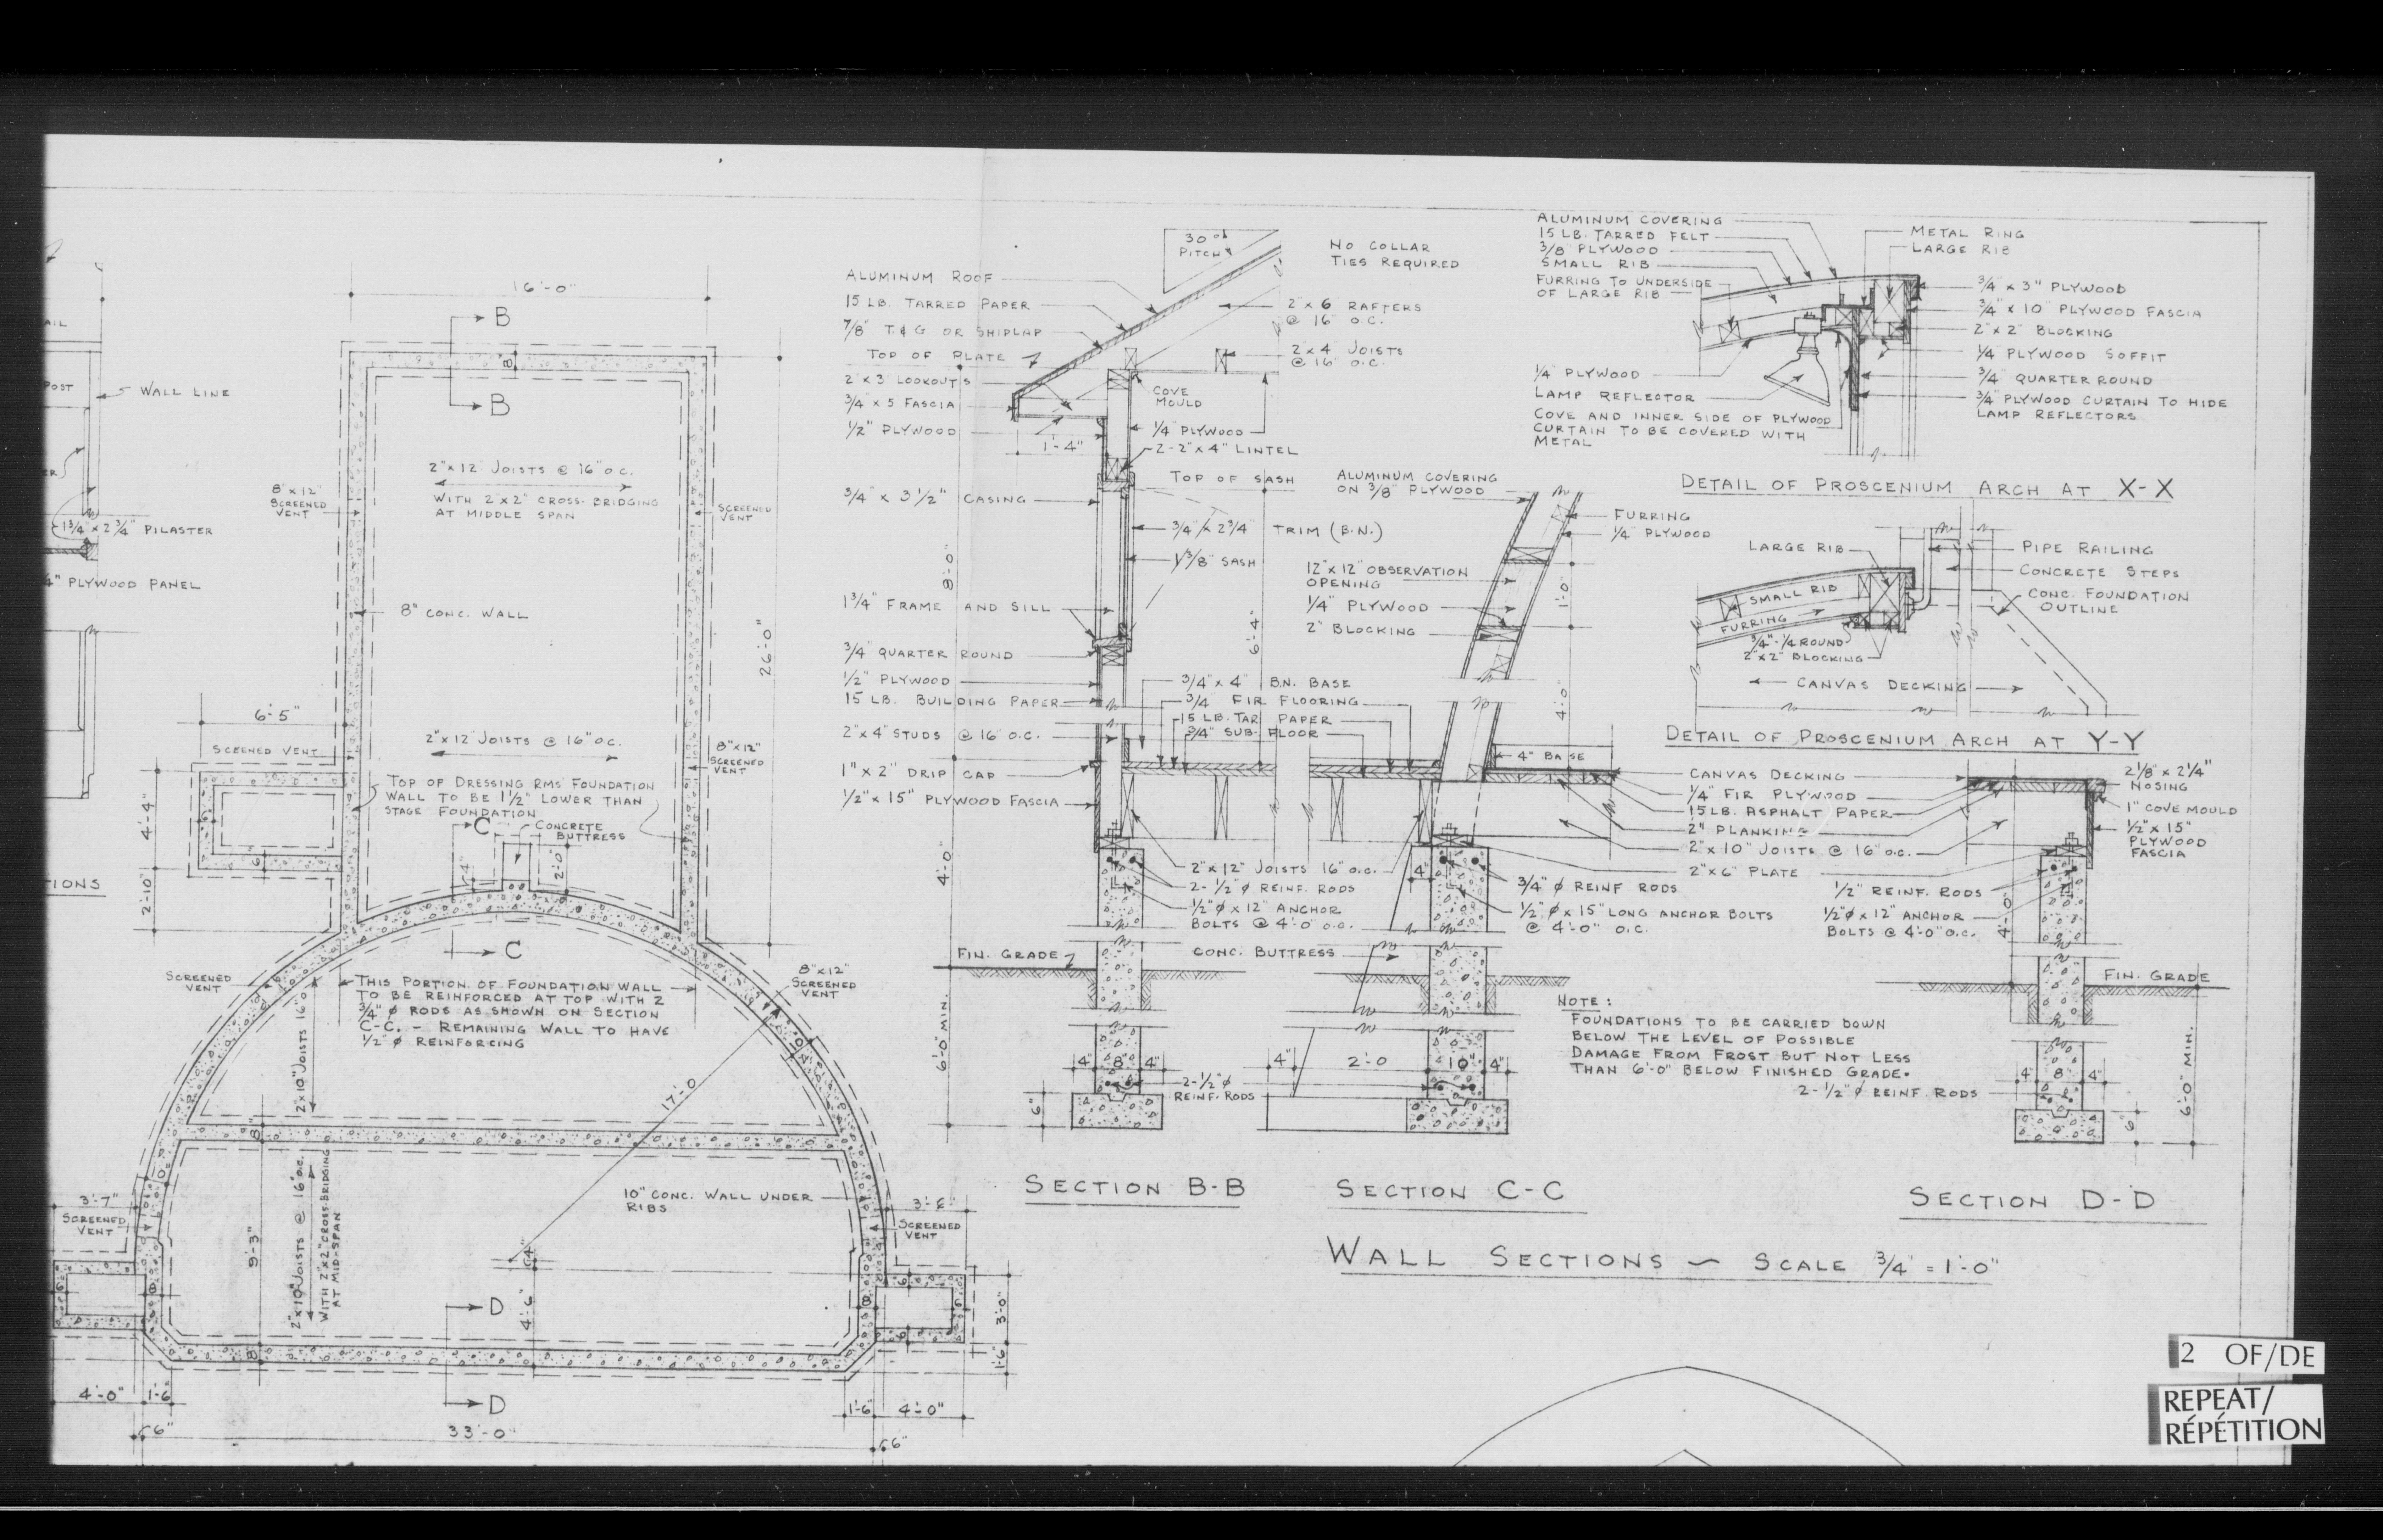 16'-0"
B
B
8"
AIL
POST
WALL LINE
1 3/4" x 2 3/4" PILASTER
4" PLYWOOD PANEL
TIONS
8"x12"
SCREENED
VENT
2"x12" JOISTS @ 16" O.C.
WITH 2"x2" CROSS-BRIDGING
AT MIDDLE SPAN
SCREENED
VENT
8" CONC. WALL
26'-0"
6'-5"
SCEENED VENT
2"x12" JOISTS @ 16" O.C.
8"x12"
SCREENED
VENT
TOP OF DRESSING RMS FOUNDATION
WALL TO BE 1 1/2" LOWER THAN
STAGE FOUNDATION
C
CONCRETE
BUTTRESS
4"
2'-0"
4'-4"
6
2'-10"
C
SCREENED
VENT
THIS PORTION OF FOUNDATION WALL
TO BE REINFORCED AT TOP WITH 2
3/4" φ RODS AS SHOWN ON SECTION
C-C. - REMAINING WALL TO HAVE
1/2" φ REINFORCING
8"x12"
SCREENED
VENT
2"x10" JOISTS 16" O.
17'-0
8"
10" CONC. WALL UNDER
RIBS
3'-7"
SCREENED
VENT
9'-3"
2"x10" JOISTS @ 16" O.C.
WITH 2"x2" CROSS-BRIDGING
AT MID-SPAN
3'-6"
SCREENED
VENT
4"
4'-6"
D
3'-0"
1'-6"
8"
D
4'-0"
1'-6
1'-6
4'-0"
6"
33'-0"
6"
30°
PITCH
NO COLLAR
TIES REQUIRED
ALUMINUM ROOF
15 LB. TARRED PAPER
7/8" T & G OR SHIPLAP
TOP OF PLATE
2"x3" LOOKOUTS
3/4 x 5 FASCIA
1/2" PLYWOOD
2"x6" RAFTERS
@ 16" O.C.
2"x4" JOISTS
@ 16" O.C.
COVE
MOULD
1/4" PLYWOOD
1'-4"
2-2"x4" LINTEL
TOP OF SASH
3/4" x 3 1/2" CASING
3/4" x 2 3/4" TRIM (B.N.)
1 3/8" SASH
8'-0"
1 3/4" FRAME AND SILL
6'-4"
3/4" QUARTER ROUND
1/2" PLYWOOD
15 LB. BUILDING PAPER
2"x4" STUDS @ 16" O.C.
1" x 2" DRIP CAP
1/2" x 15" PLYWOOD FASCIA
3/4" x 4" B.N. BASE
3/4" FIR FLOORING
15 LB. TAR PAPER
3/4" SUB-FLOOR
4'-0"
2"x12" JOISTS 16" O.C.
2-1/2" φ REINF. RODS
1/2" φ x 12" ANCHOR
BOLTS @ 4'-0" O.C.
FIN. GRADE
CONC. BUTTRESS
6'-0" MIN.
4" 8" 4"
2-1/2" φ
REINF. RODS
6"
SECTION B-B
ALUMINUM COVERING
ON 3/8" PLYWOOD
FURRING
1/4" PLYWOOD
12"x12" OBSERVATION
OPENING
1/4" PLYWOOD
2" BLOCKING
1'-0"
4'-0"
4" BASE
4"
3/4" φ REINF RODS
1/2" φ x 15" LONG ANCHOR BOLTS
@ 4'-0" O.C.
4" 2'-0 10" 4"
SECTION C-C
NOTE:
FOUNDATIONS TO BE CARRIED DOWN
BELOW THE LEVEL OF POSSIBLE
DAMAGE FROM FROST BUT NOT LESS
THAN 6'-0" BELOW FINISHED GRADE.
ALUMINUM COVERING
15 LB. TARRED FELT
3/8" PLYWOOD
SMALL RIB
FURRING TO UNDERSIDE
OF LARGE RIB
1/4" PLYWOOD
LAMP REFLECTOR
COVE AND INNER SIDE OF PLYWOOD
CURTAIN TO BE COVERED WITH
METAL
METAL RING
LARGE RIB
3/4" x 3" PLYWOOD
3/4" x 10" PLYWOOD FASCIA
2"x2" BLOCKING
1/4" PLYWOOD SOFFIT
3/4" QUARTER ROUND
3/4" PLYWOOD CURTAIN TO HIDE
LAMP REFLECTORS
DETAIL OF PROSCENIUM ARCH AT X-X
LARGE RIB
SMALL RIB
FURRING
3/4"-1/4 ROUND
2"x2" BLOCKING
PIPE RAILING
CONCRETE STEPS
CONC. FOUNDATION
OUTLINE
CANVAS DECKING
DETAIL OF PROSCENIUM ARCH AT Y-Y
CANVAS DECKING
1/4" FIR PLYWOOD
15 LB. ASPHALT PAPER
2" PLANKING
2"x10" JOISTS @ 16" O.C.
2"x6" PLATE
2 1/8" x 2 1/4"
NOSING
1" COVE MOULD
1/2" x 15"
PLYWOOD
FASCIA
1/2" REINF. RODS
1/2" φ x 12" ANCHOR
BOLTS @ 4'-0" O.C.
4'-0"
FIN. GRADE
4" 8" 4"
2-1/2" φ REINF. RODS
6'-0" MIN.
6"
SECTION D-D
WALL SECTIONS ~ SCALE 3/4" = 1'-0"
2 OF/DE
REPEAT/
RÉPÉTITION